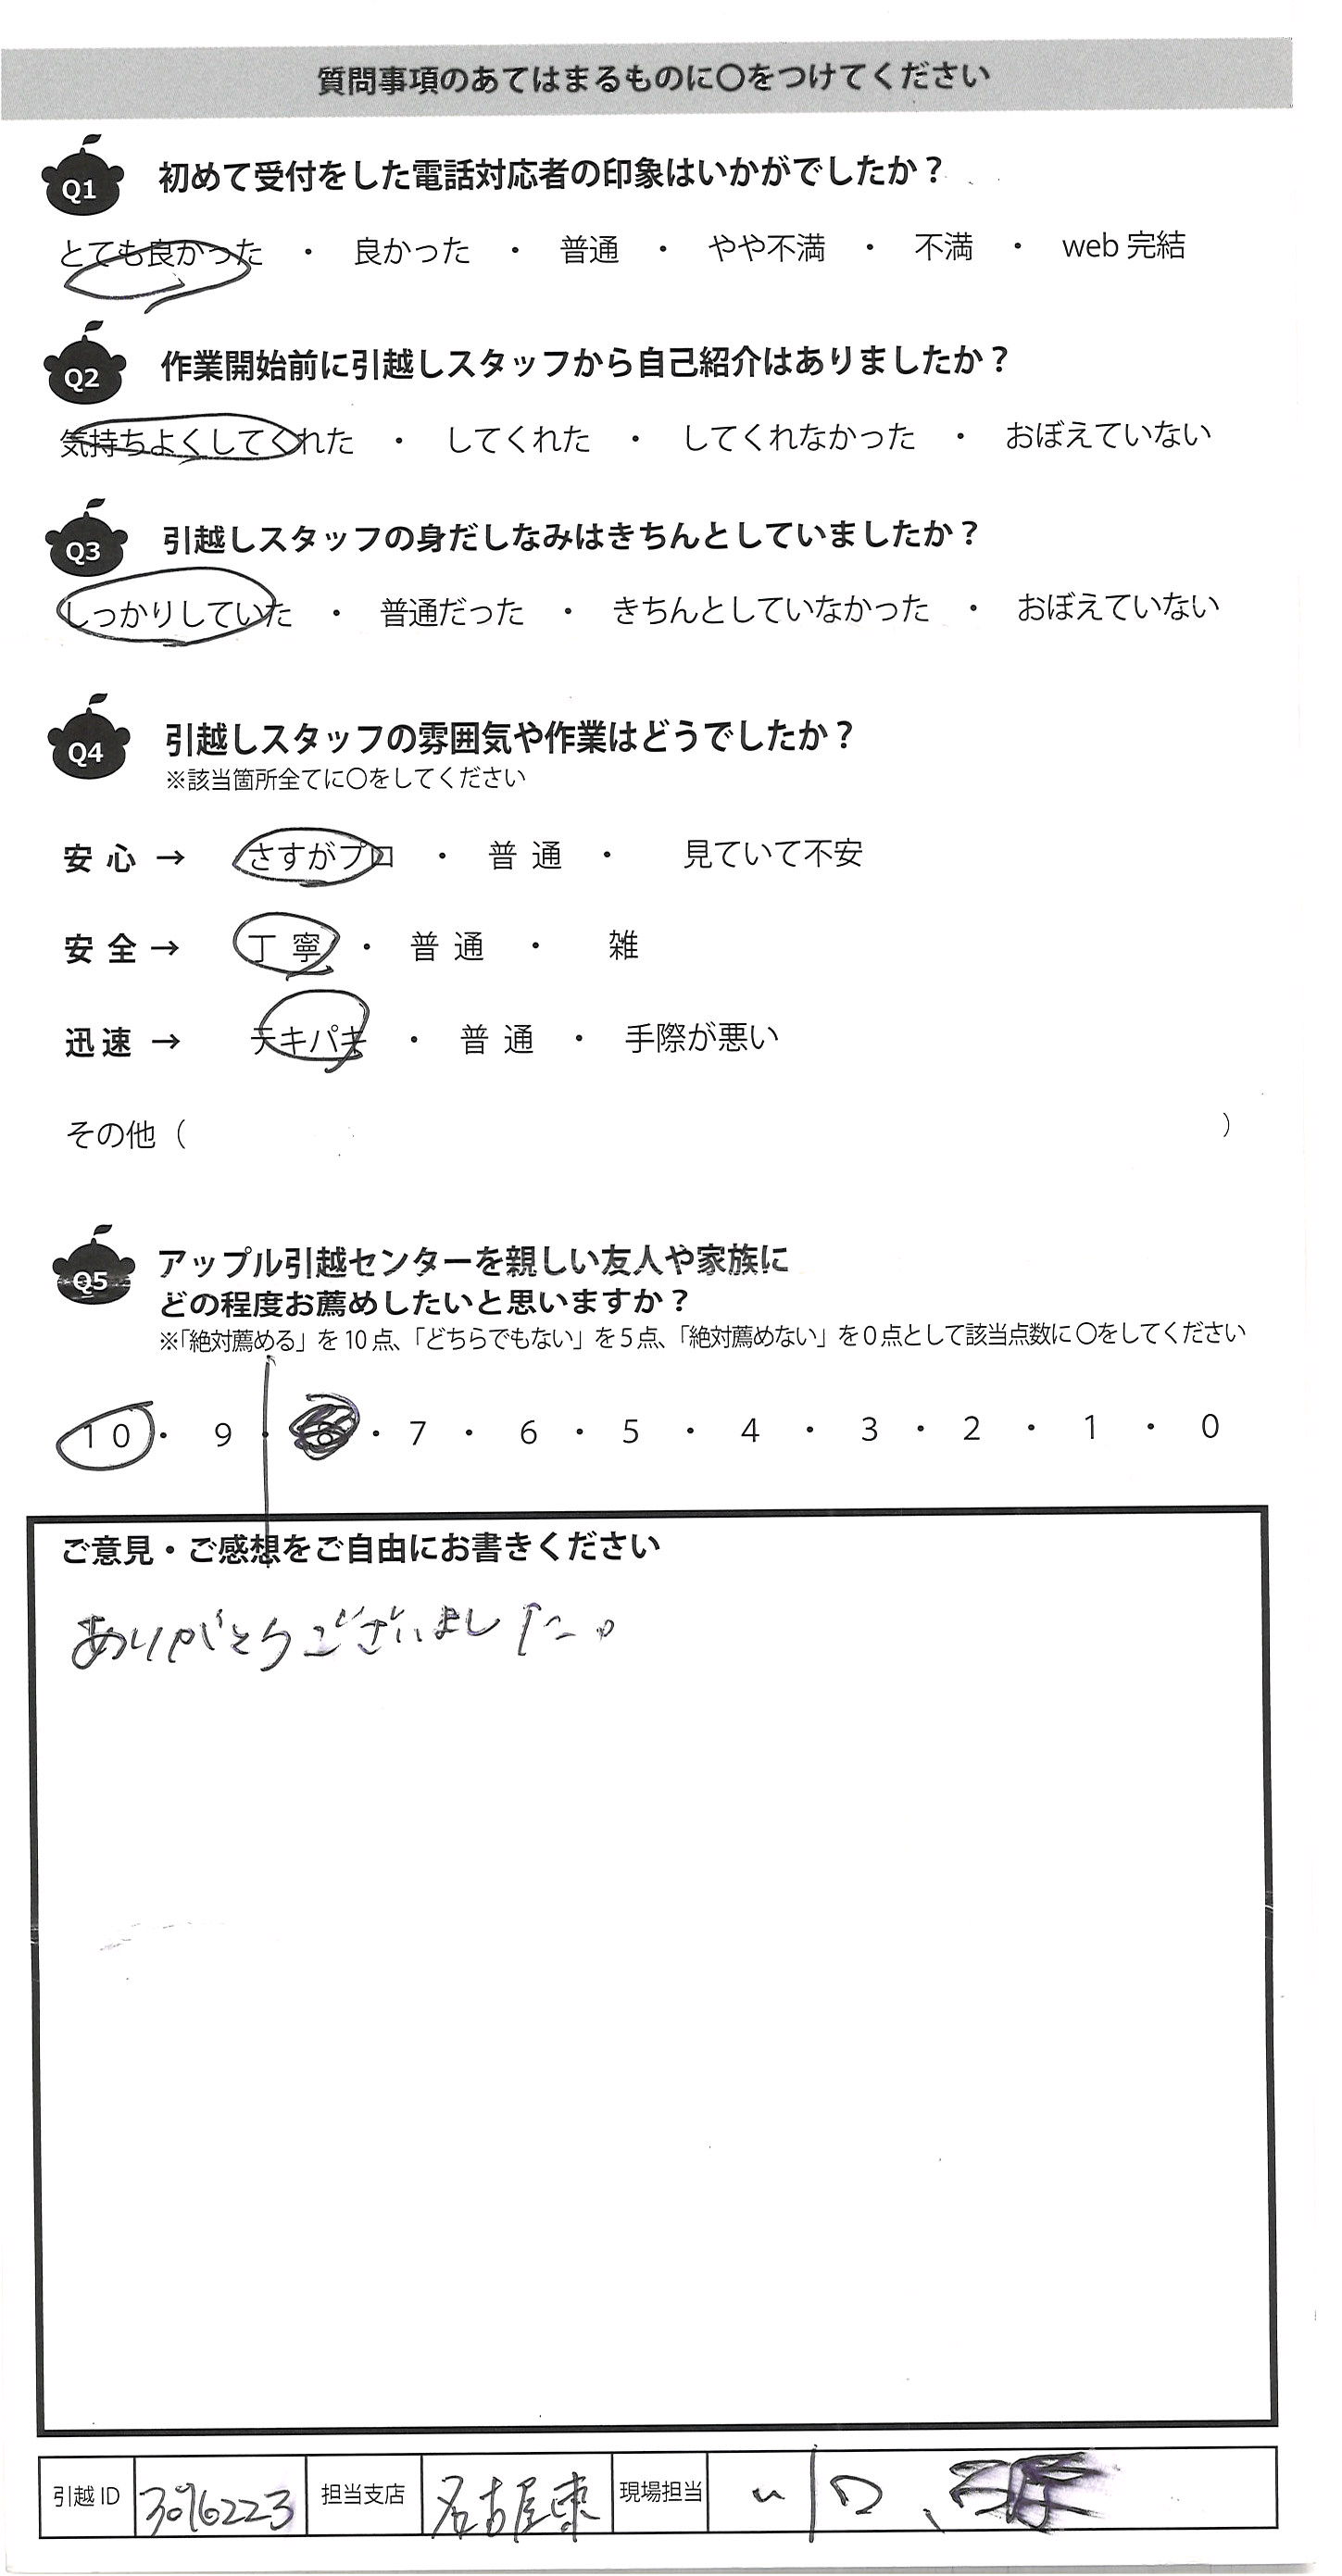 質問事項のあてはまるものに○をつけてください
Q1 初めて受付をした電話対応者の印象はいかがでしたか？
とても良かった ・ 良かった ・ 普通 ・ やや不満 ・ 不満 ・ web 完結
Q2 作業開始前に引越しスタッフから自己紹介はありましたか？
気持ちよくしてくれた ・ してくれた ・ してくれなかった ・ おぼえていない
Q3 引越しスタッフの身だしなみはきちんとしていましたか？
しっかりしていた ・ 普通だった ・ きちんとしていなかった ・ おぼえていない
Q4 引越しスタッフの雰囲気や作業はどうでしたか？
※該当箇所全てに○をしてください
安心 → さすがプロ ・ 普通 ・ 見ていて不安
安全 → 丁寧 ・ 普通 ・ 雑
迅速 → テキパキ ・ 普通 ・ 手際が悪い
その他（ ）
Q5 アップル引越センターを親しい友人や家族に
どの程度お薦めしたいと思いますか？
※「絶対薦める」を10点、「どちらでもない」を5点、「絶対薦めない」を0点として該当点数に○をしてください
10 ・ 9 ・ 8 ・ 7 ・ 6 ・ 5 ・ 4 ・ 3 ・ 2 ・ 1 ・ 0
ご意見・ご感想をご自由にお書きください
ありがとうございました。
引越ID 3076223 担当支店 名古屋東 現場担当